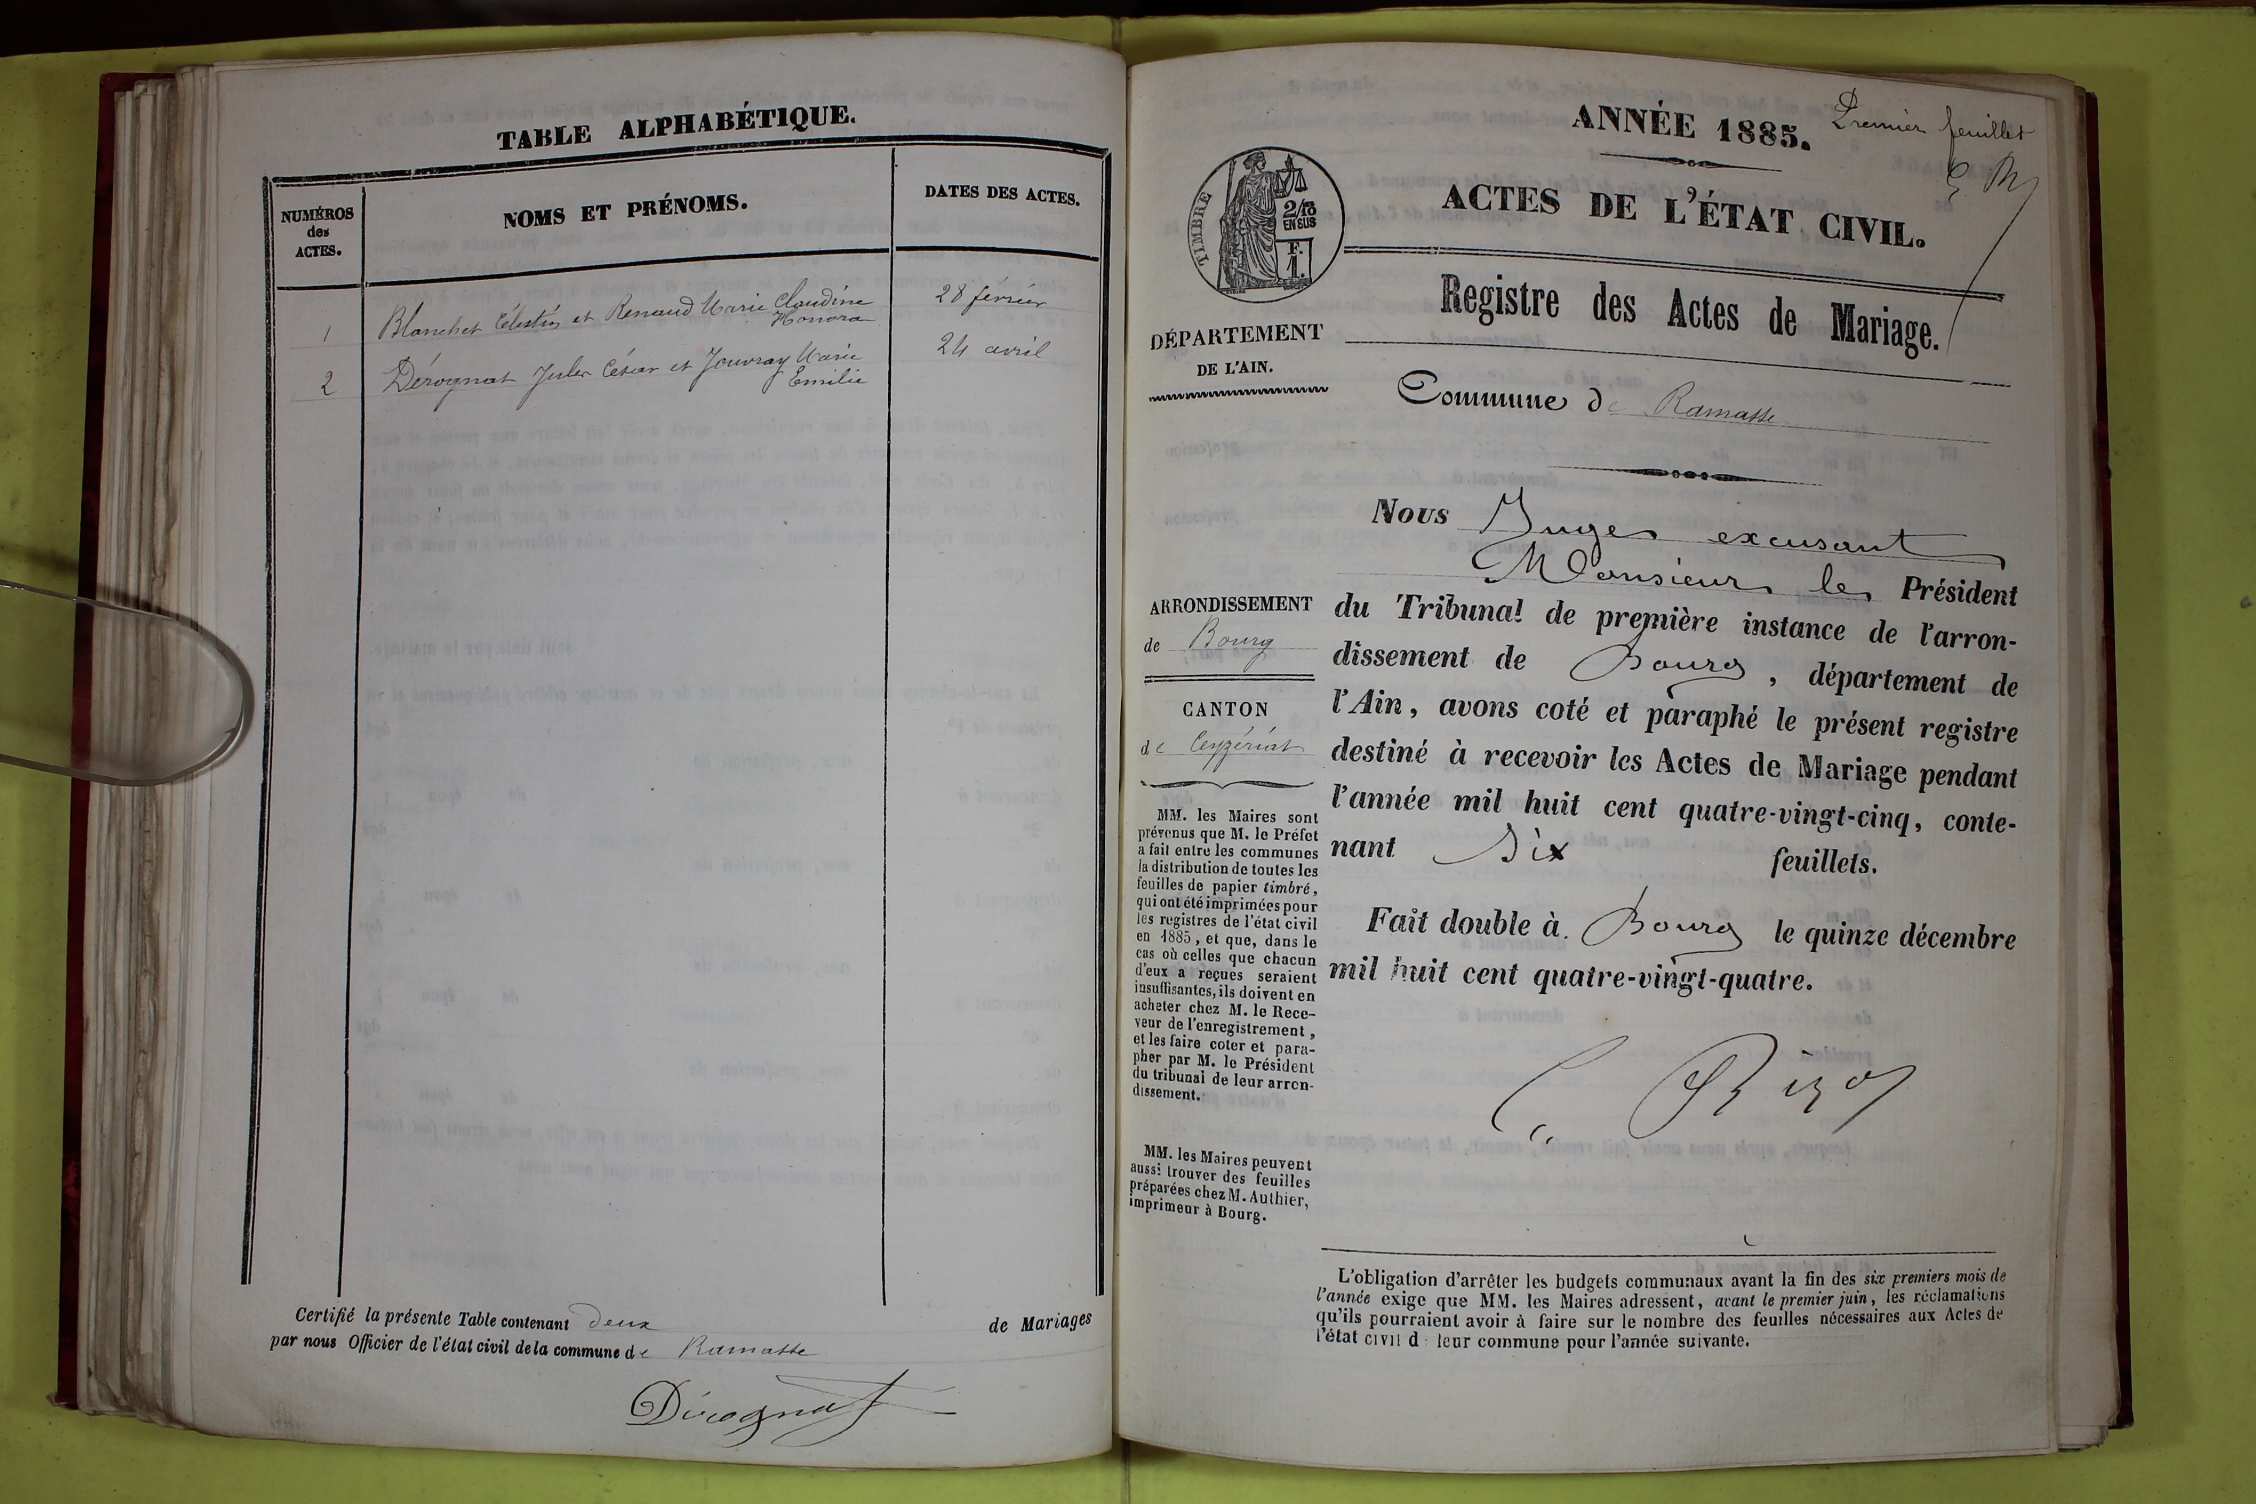 TABLE ALPHABÉTIQUE.
NUMÉROS
des
ACTES.
NOMS ET PRÉNOMS.
DATES DES ACTES.
1 Blanchet Célestin et Renaud Marie Claudine 28 février
Honora
2 Dérognat Jules César et Jouvray Marie 24 avril
Emilie
Certifié la présente Table contenant deux de Mariages
par nous Officier de l'état civil de la commune de Ramasse
Dérognat
Premier feuillet
ANNÉE 1885.
ACTES DE L'ÉTAT CIVIL.
TIMBRE
2/10
EN SUS
F.
1.
Registre des Actes de Mariage.
DÉPARTEMENT
DE L'AIN.
Commune de Ramasse
ARRONDISSEMENT
de Bourg
CANTON
de Ceyzériat
MM. les Maires sont
prévenus que M. le Préfet
a fait entre les communes
la distribution de toutes les
feuilles de papier timbré,
qui ont été imprimées pour
les registres de l'état civil
en 1885, et que, dans le
cas où celles que chacun
d'eux a reçues seraient
insuffisantes, ils doivent en
acheter chez M. le Rece-
veur de l'enregistrement,
et les faire coter et para-
pher par M. le Président
du tribunal de leur arron-
dissement.
MM. les Maires peuvent
aussi trouver des feuilles
préparées chez M. Authier,
imprimeur à Bourg.
Nous Juge excusant
Monsieur le Président
du Tribunal de première instance de l'arron-
dissement de Bourg, département de
l'Ain, avons coté et paraphé le présent registre
destiné à recevoir les Actes de Mariage pendant
l'année mil huit cent quatre-vingt-cinq, conte-
nant Six feuillets.
Fait double à Bourg le quinze décembre
mil huit cent quatre-vingt-quatre.
L'obligation d'arrêter les budgets communaux avant la fin des six premiers mois de
l'année exige que MM. les Maires adressent, avant le premier juin, les réclamations
qu'ils pourraient avoir à faire sur le nombre des feuilles nécessaires aux Actes de
l'état civil d leur commune pour l'année suivante.